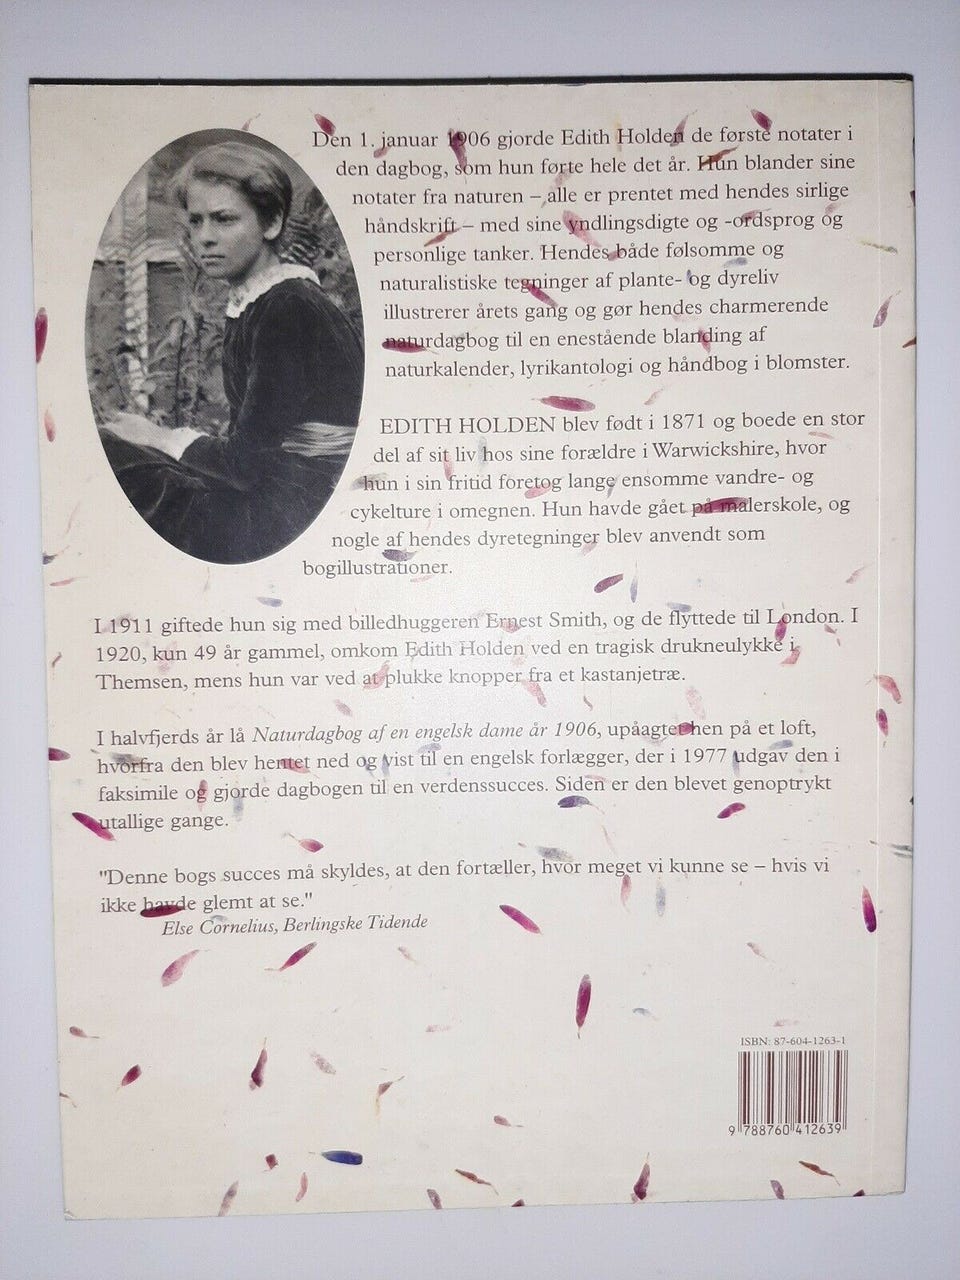 Den 1. januar 1906 gjorde Edith Holden de første notater i
den dagbog, som hun førte hele det år. Hun blander sine
notater fra naturen – alle er prentet med hendes sirlige
håndskrift – med sine yndlingsdigte og -ordsprog og
personlige tanker. Hendes både følsomme og
naturalistiske tegninger af plante- og dyreliv
illustrerer årets gang og gør hendes charmerende
naturdagbog til en enestående blanding af
naturkalender, lyrikantologi og håndbog i blomster.
EDITH HOLDEN blev født i 1871 og boede en stor
del af sit liv hos sine forældre i Warwickshire, hvor
hun i sin fritid foretog lange ensomme vandre- og
cykelture i omegnen. Hun havde gået på malerskole, og
nogle af hendes dyretegninger blev anvendt som
bogillustrationer.
I 1911 giftede hun sig med billedhuggeren Ernest Smith, og de flyttede til London. I
1920, kun 49 år gammel, omkom Edith Holden ved en tragisk drukneulykke i
Themsen, mens hun var ved at plukke knopper fra et kastanjetræ.
I halvfjerds år lå Naturdagbog af en engelsk dame år 1906, upåagtet hen på et loft,
hvorfra den blev hentet ned og vist til en engelsk forlægger, der i 1977 udgav den i
faksimile og gjorde dagbogen til en verdenssucces. Siden er den blevet genoptrykt
utallige gange.
"Denne bogs succes må skyldes, at den fortæller, hvor meget vi kunne se – hvis vi
ikke havde glemt at se."
Else Cornelius, Berlingske Tidende
ISBN: 87-604-1263-1
9 788760 412639